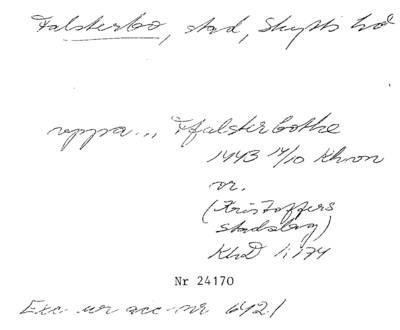 Falsterbo, stad, Skytts hd
uppa... Ffalsterbothe
1443 14/10 Khvon
or.
(Kristoffers
stadslag)
KhD 1:174
Nr 24170
Exc. ur acc. nr 642.1